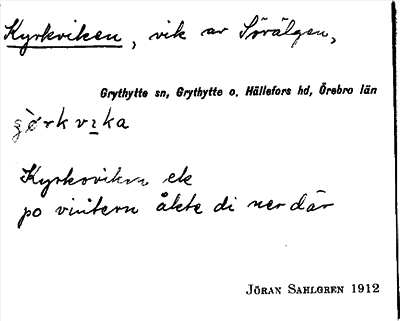 Kyrkviken, vik av Sörälgen,
Grythytte sn, Grythytte o. Hällefors hd, Örebro län
Kyrkoviken ek
po vintern åkte di ner där
JÖRAN SAHLGREN 1912